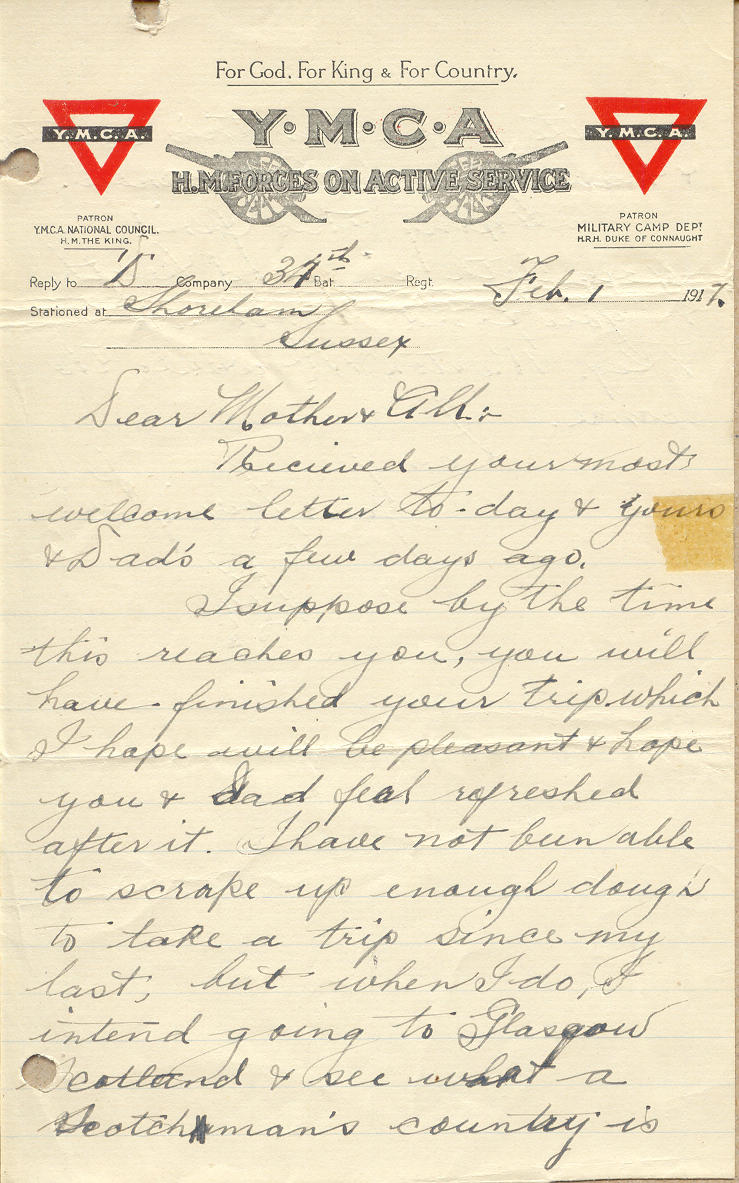 For God. For King & For Country.
Y·M·C·A
H.M. FORCES ON ACTIVE SERVICE
Y.M.C.A.
Y.M.C.A.
PATRON
Y.M.C.A. NATIONAL COUNCIL.
H.M. THE KING.
PATRON
MILITARY CAMP DEPT
H.R.H. DUKE OF CONNAUGHT
Reply to "D" Company 34th Bat. Regt. Feb. 1 1917.
Stationed at Shoreham
Sussex
Dear Mother & All:-
Recieved your most
welcome letter to-day & yours
& Dad's a few days ago.
I suppose by the time
this reaches you, you will
have finished your trip which
I hope will be pleasant & hope
you & Dad feel refreshed
after it. I have not been able
to scrape up enough dough
to take a trip since my
last, but when I do, I
intend going to Glasgow
Scotland & see what a
Scotchman's country is